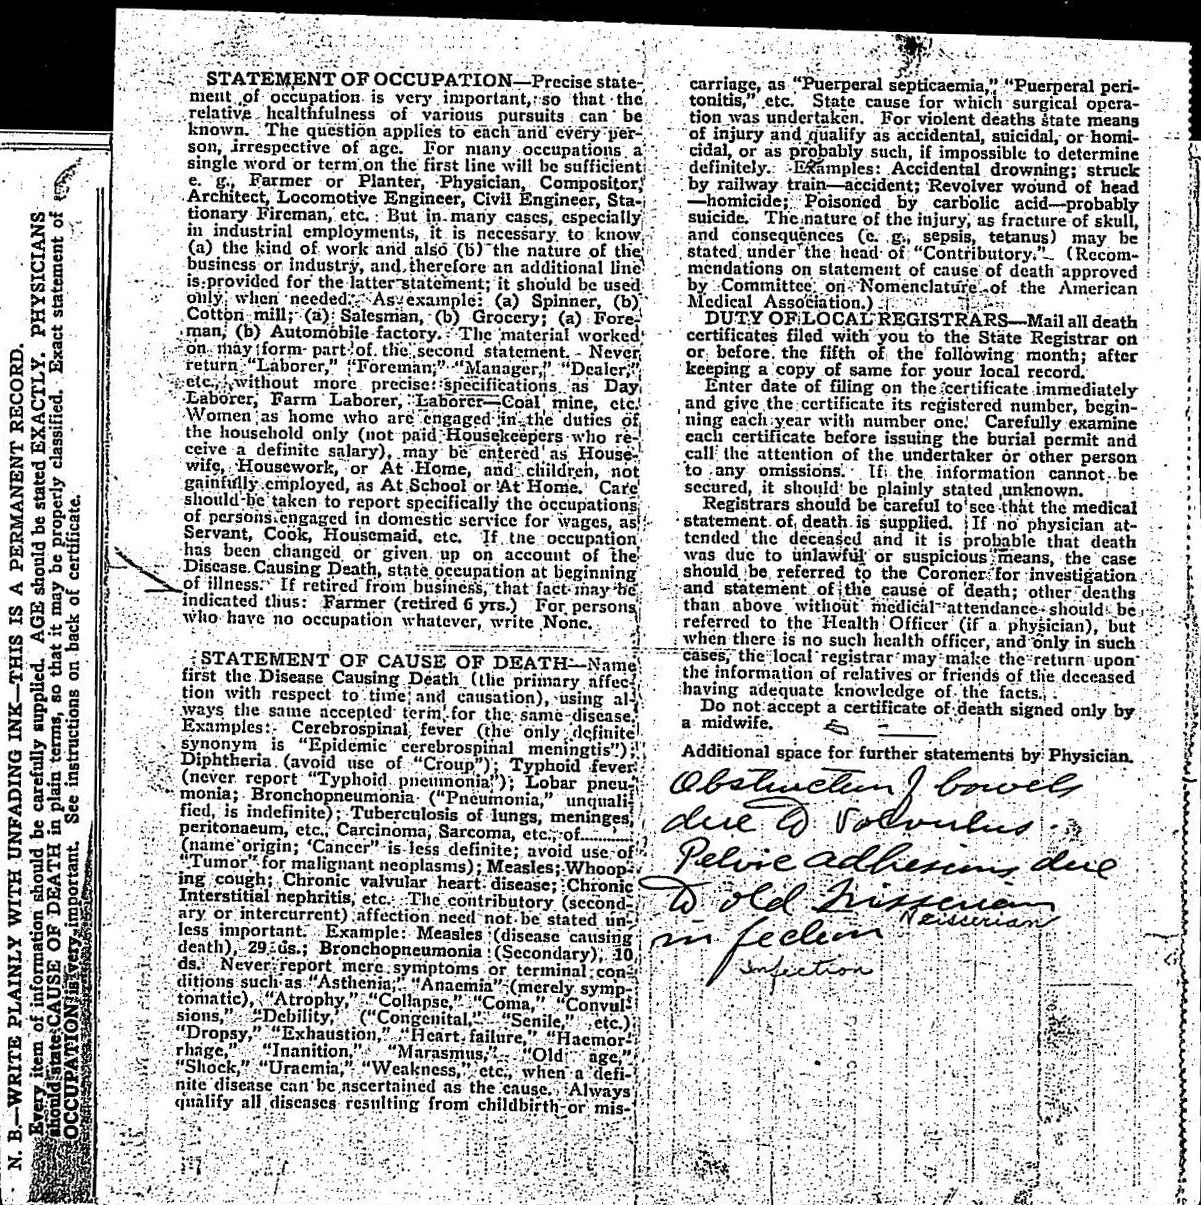 N. B.—WRITE PLAINLY WITH UNFADING INK—THIS IS A PERMANENT RECORD.
Every item of information should be carefully supplied. AGE should be stated EXACTLY. PHYSICIANS
should state CAUSE OF DEATH in plain terms, so that it may be properly classified. Exact statement of
OCCUPATION is very important. See instructions on back of certificate.
STATEMENT OF OCCUPATION—Precise state-
ment of occupation is very important, so that the
relative healthfulness of various pursuits can be
known. The question applies to each and every per-
son, irrespective of age. For many occupations a
single word or term on the first line will be sufficient
e. g., Farmer or Planter, Physician, Compositor,
Architect, Locomotive Engineer, Civil Engineer, Sta-
tionary Fireman, etc. But in many cases, especially
in industrial employments, it is necessary to know
(a) the kind of work and also (b) the nature of the
business or industry, and therefore an additional line
is provided for the latter statement; it should be used
only when needed. As example: (a) Spinner, (b)
Cotton mill; (a) Salesman, (b) Grocery; (a) Fore-
man, (b) Automobile factory. The material worked
on may form part of the second statement. Never
return "Laborer," "Foreman," "Manager," "Dealer,"
etc., without more precise specifications as Day
Laborer, Farm Laborer, Laborer—Coal mine, etc.
Women as home who are engaged in the duties of
the household only (not paid Housekeepers who re-
ceive a definite salary), may be entered as House-
wife, Housework, or At Home, and children, not
gainfully employed, as At School or At Home. Care
should be taken to report specifically the occupations
of persons engaged in domestic service for wages, as
Servant, Cook, Housemaid, etc. If the occupation
has been changed or given up on account of the
Disease Causing Death, state occupation at beginning
of illness. If retired from business, that fact may be
indicated thus: Farmer (retired 6 yrs.) For persons
who have no occupation whatever, write None.
STATEMENT OF CAUSE OF DEATH—Name
first the Disease Causing Death (the primary affec-
tion with respect to time and causation), using al-
ways the same accepted term for the same disease.
Examples: Cerebrospinal fever (the only definite
synonym is "Epidemic cerebrospinal meningtis");
Diphtheria (avoid use of "Croup"); Typhoid fever
(never report "Typhoid pneumonia"); Lobar pneu-
monia; Bronchopneumonia ("Pneumonia," unquali-
fied, is indefinite); Tuberculosis of lungs, meninges,
peritonaeum, etc., Carcinoma, Sarcoma, etc., of.........
(name origin; 'Cancer" is less definite; avoid use of
"Tumor" for malignant neoplasms); Measles; Whoop-
ing cough; Chronic valvular heart disease; Chronic
Interstitial nephritis, etc. The contributory (second-
ary or intercurrent) affection need not be stated un-
less important. Example: Measles (disease causing
death), 29 ds.; Bronchopneumonia (Secondary), 10
ds. Never report mere symptoms or terminal con-
ditions such as "Asthenia," "Anaemia" (merely symp-
tomatic), "Atrophy," "Collapse," "Coma," "Convul-
sions," "Debility," ("Congenital," "Senile," etc.)
"Dropsy," "Exhaustion," "Heart failure," "Haemor-
rhage," "Inanition," "Marasmus," "Old age,"
"Shock," "Uraemia," "Weakness," etc., when a defi-
nite disease can be ascertained as the cause. Always
qualify all diseases resulting from childbirth or mis-
carriage, as "Puerperal septicaemia," "Puerperal peri-
tonitis," etc. State cause for which surgical opera-
tion was undertaken. For violent deaths state means
of injury and qualify as accidental, suicidal, or homi-
cidal, or as probably such, if impossible to determine
definitely. Examples: Accidental drowning; struck
by railway train—accident; Revolver wound of head
—homicide; Poisoned by carbolic acid—probably
suicide. The nature of the injury, as fracture of skull,
and consequences (e. g., sepsis, tetanus) may be
stated under the head of "Contributory." (Recom-
mendations on statement of cause of death approved
by Committee on Nomenclature of the American
Medical Association.)
DUTY OF LOCAL REGISTRARS—Mail all death
certificates filed with you to the State Registrar on
or before the fifth of the following month; after
keeping a copy of same for your local record.
Enter date of filing on the certificate immediately
and give the certificate its registered number, begin-
ning each year with number one. Carefully examine
each certificate before issuing the burial permit and
call the attention of the undertaker or other person
to any omissions. If the information cannot be
secured, it should be plainly stated unknown.
Registrars should be careful to see that the medical
statement of death is supplied. If no physician at-
tended the deceased and it is probable that death
was due to unlawful or suspicious means, the case
should be referred to the Coroner for investigation
and statement of the cause of death; other deaths
than above without medical attendance should be
referred to the Health Officer (if a physician), but
when there is no such health officer, and only in such
cases, the local registrar may make the return upon
the information of relatives or friends of the deceased
having adequate knowledge of the facts.
Do not accept a certificate of death signed only by
a midwife.
Additional space for further statements by Physician.
Obstruction of bowels
due to Volvulus.
Pelvic adhesions due
to old Nisserian
Neisserian
infection
Infection